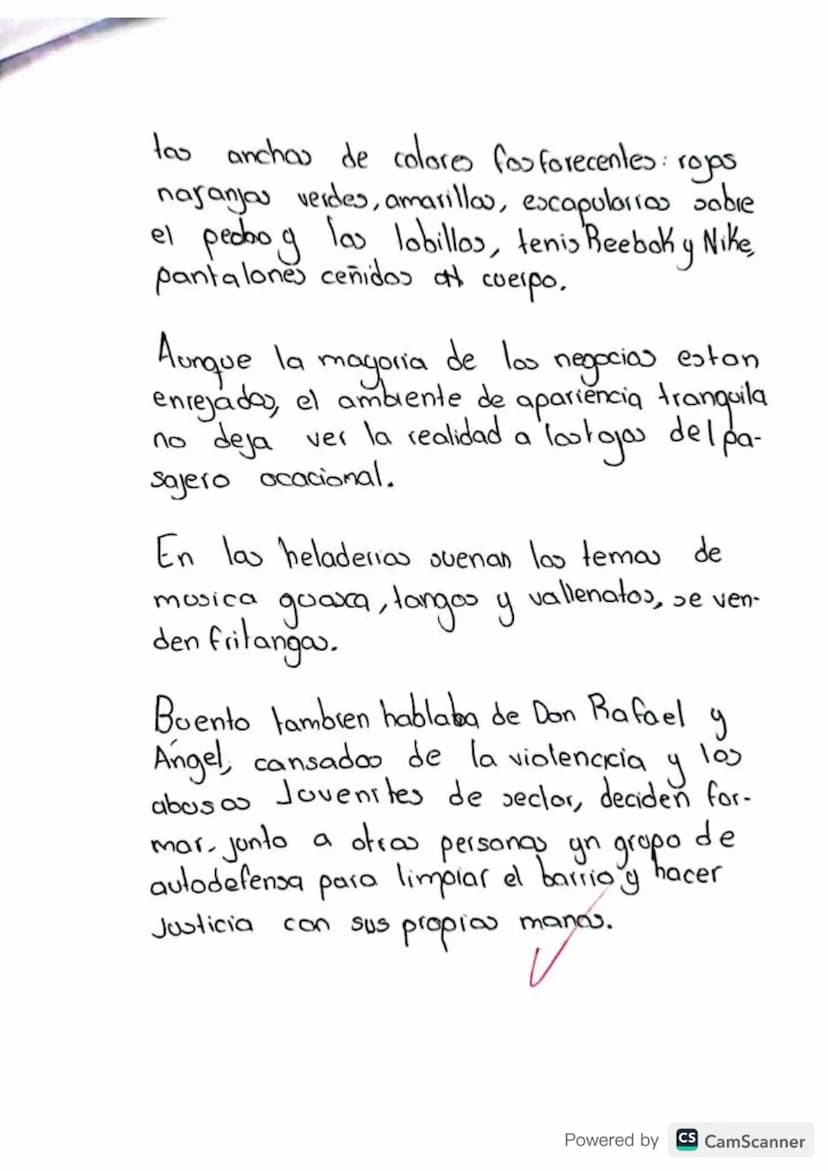 tas anchas de colores fosforecentes: rojas
naranjas verdes, amarillas, escapularios sobre
el pecho y los lobillos, tenis Reebok y Nike,
pantalones ceñidos al cuerpo.
Aunque la mayoria de los negocios estan
enrejados, el ambiente de apariencia tranquila
no deja ver la realidad a los ojos del pa-
sajero ocacional.
En las heladerias suenan los temas de
musica guasca, tangos y vallenatos, se ven-
den fritangas.
Bueno tambien hablaba de Don Rafael y
Ángel, cansados de la violencia y los
abusos de sector, deciden for-
mar, junto a otras personas un grupo de
autodefensa para limpiar el barrio y hacer
Justicia con sus propias manos.
Powered by CS CamScanner